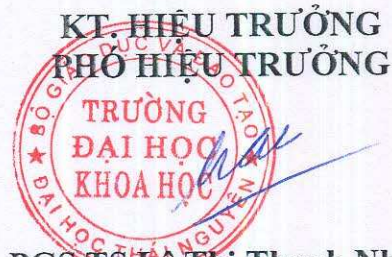 KT. HIỆU TRƯỞNG
PHÓ HIỆU TRƯỞNG
BỘ GIÁO DỤC VÀ ĐÀO TẠO
TRƯỜNG
ĐẠI HỌC
KHOA HỌC
ĐẠI HỌC THÁI NGUYÊN
PGS.TS Lê Thị Thanh